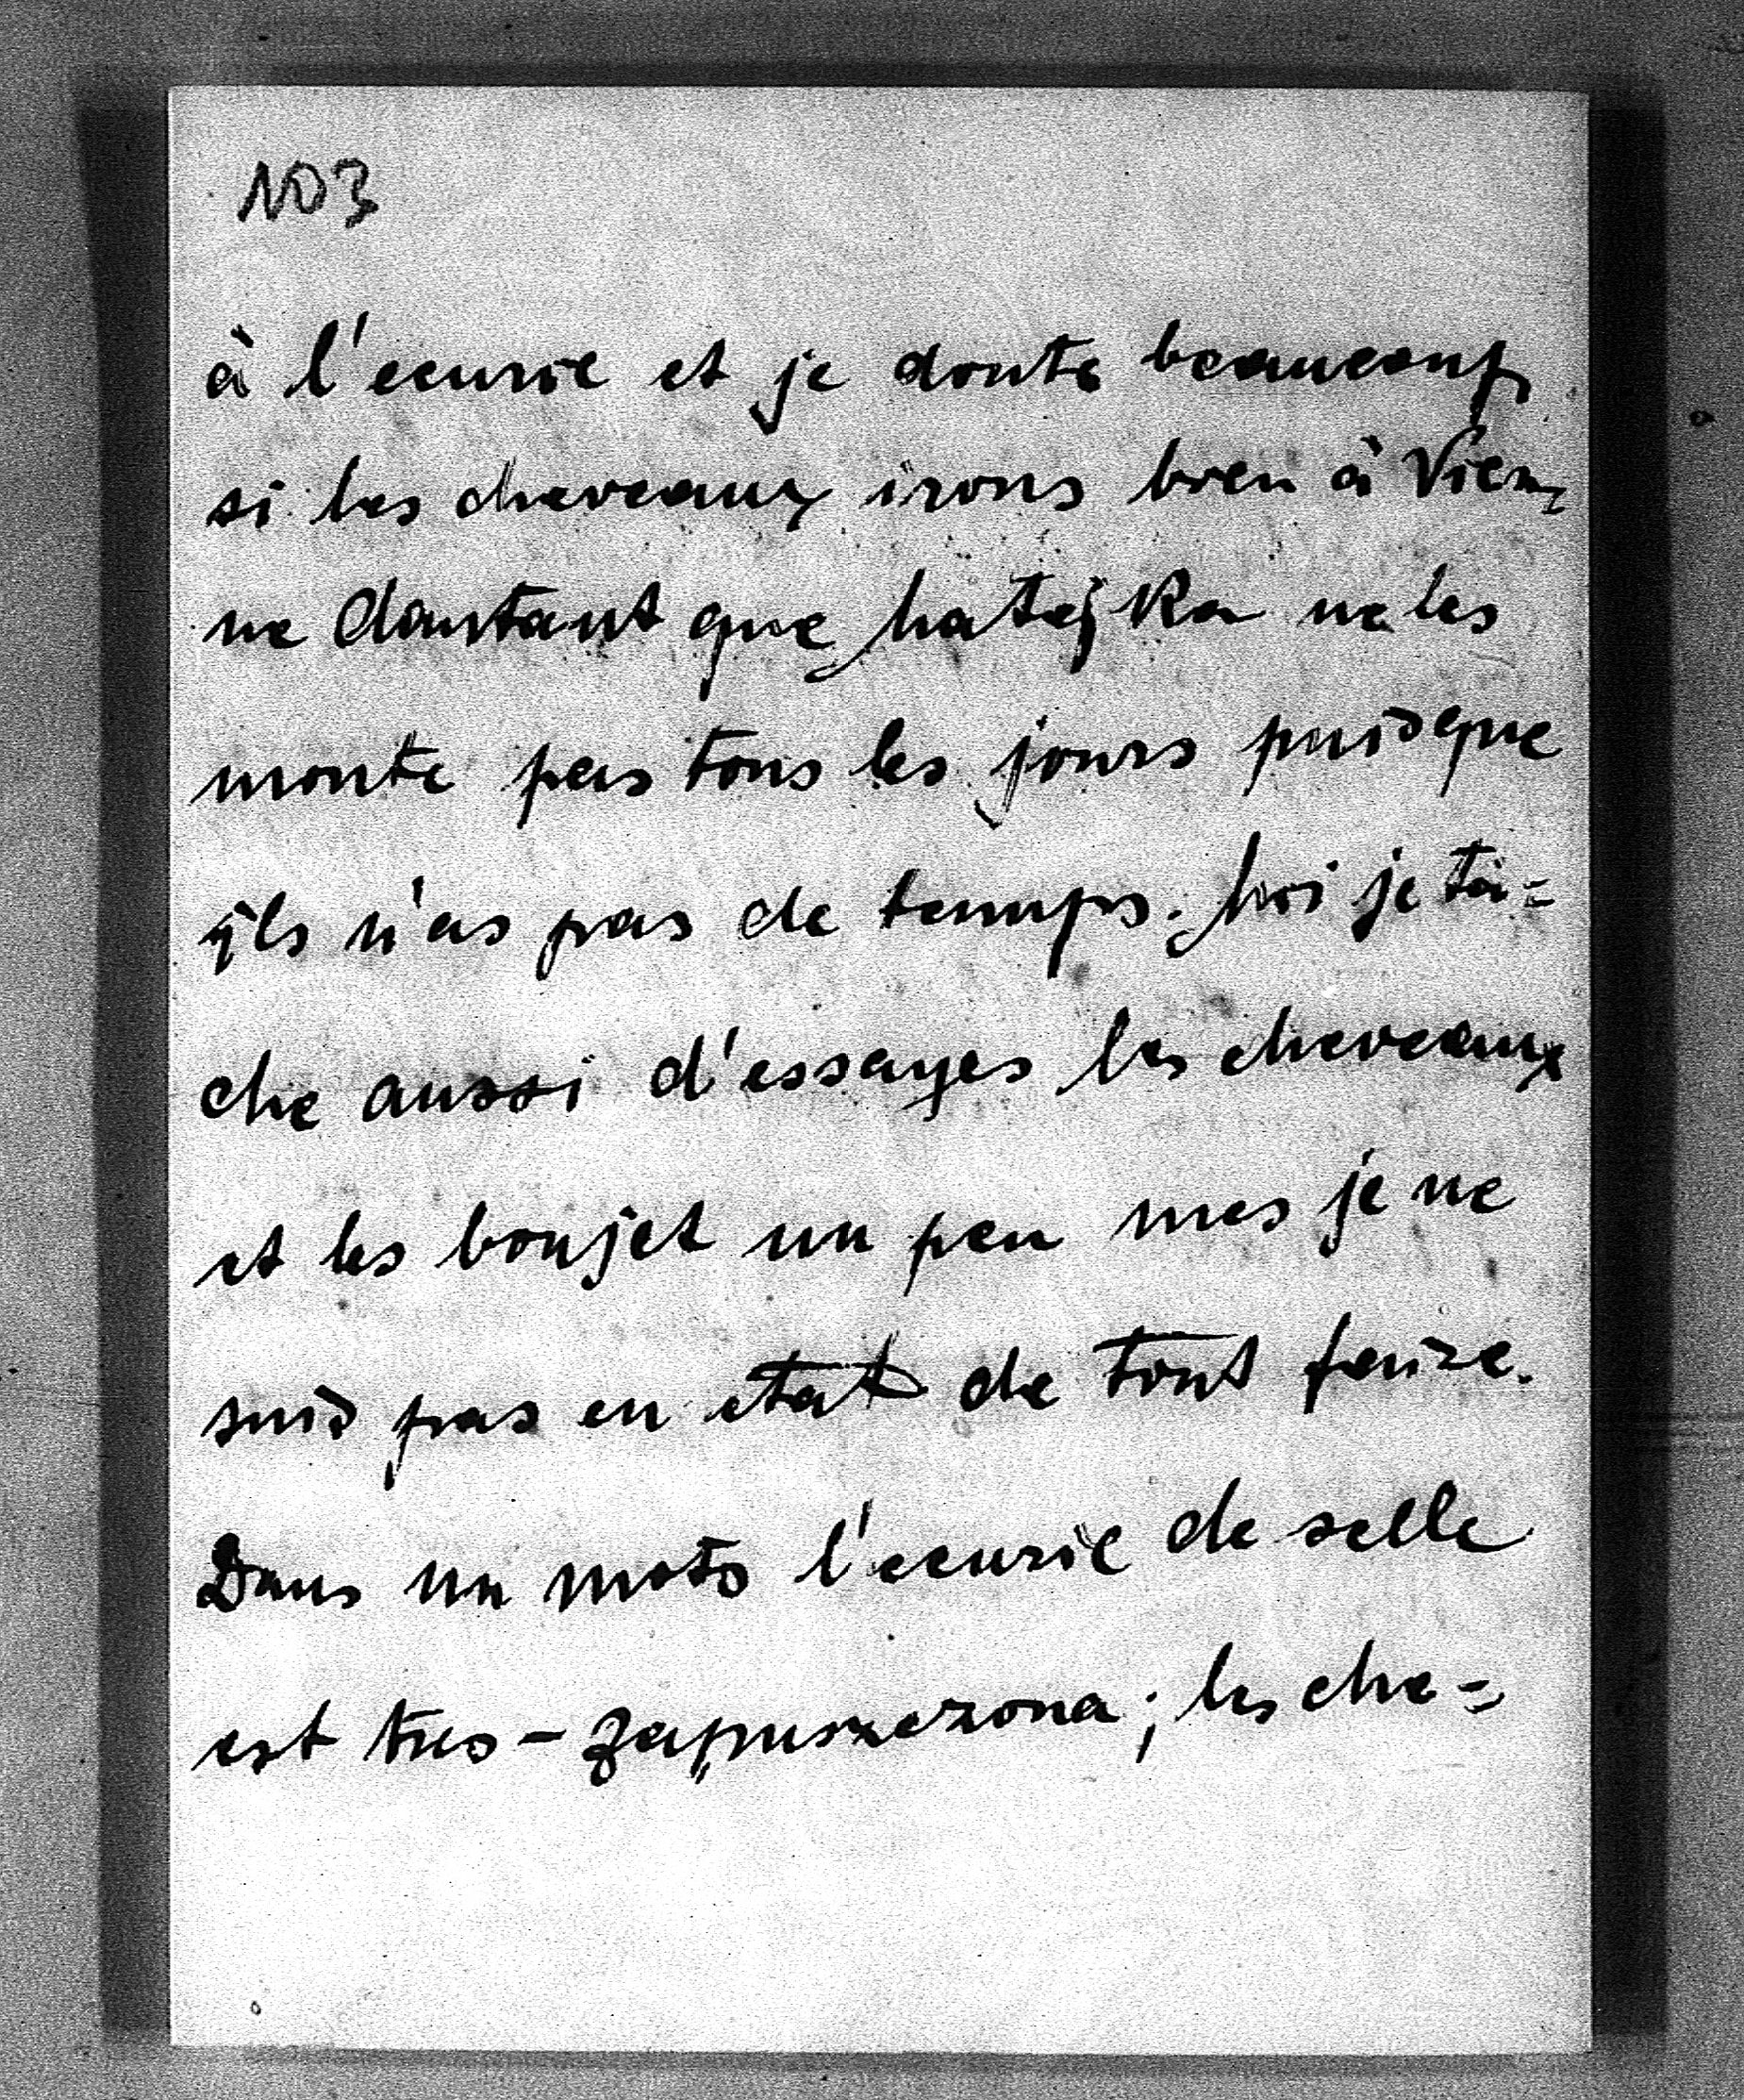 103
à l'ecurie et je doute beaucoup
si les cheveaux irons bien à Vien-
ne dautant que Matejka ne les
monte pas tous les jours puisque
ils n'as pas de temps. Moi je tâ=
che aussi d'essayes les cheveaux
et les boujet un peu mes je ne
suis pas en etat de tout faire.
Dans un mots l'ecurie de selle
est tres - zapuszczona; les che=